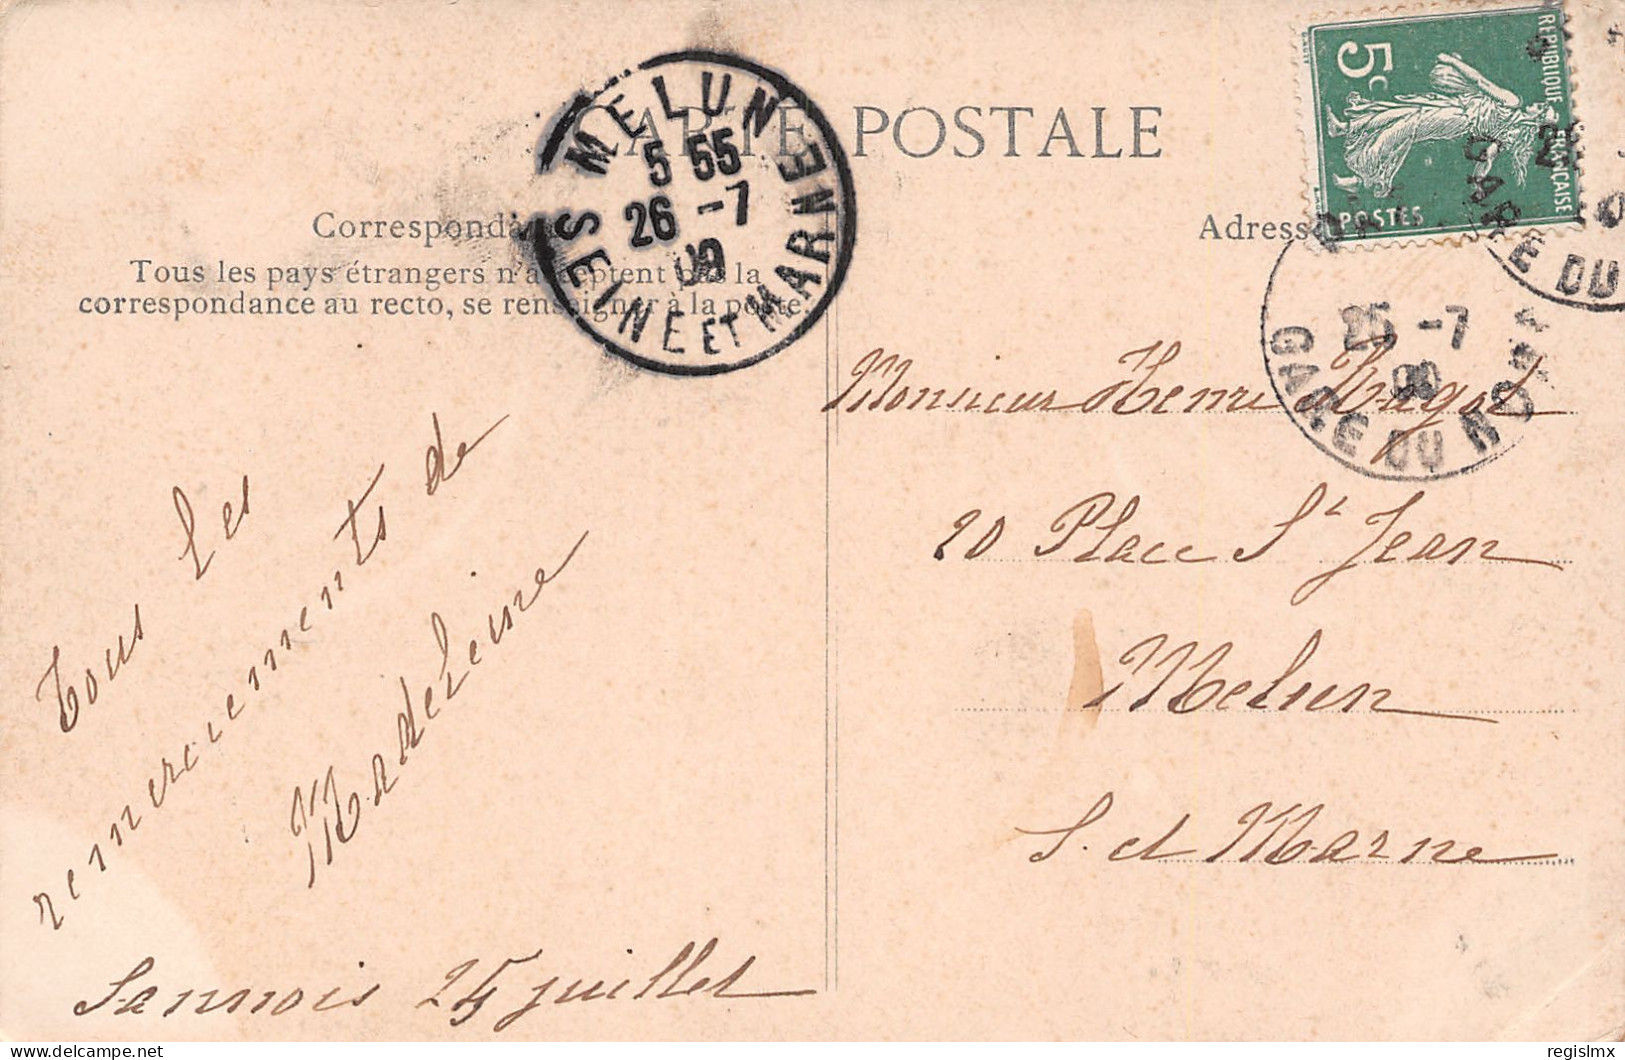 CARTE POSTALE
Correspondance
Tous les pays étrangers n'acceptent pas la
correspondance au recto, se renseigner à la poste.
MELUN
5 55
26 -7
09
SEINE ET MARNE
Adresse
REPUBLIQUE FRANÇAISE
5c
POSTES
GARE DU
25 -7
09
GARE DU NORD
Tous les
remerciements de
Madeleine
Sannois 25 juillet
Monsieur Henri Hugot
20 Place St Jean
Melun
S. et Marne
regislmx